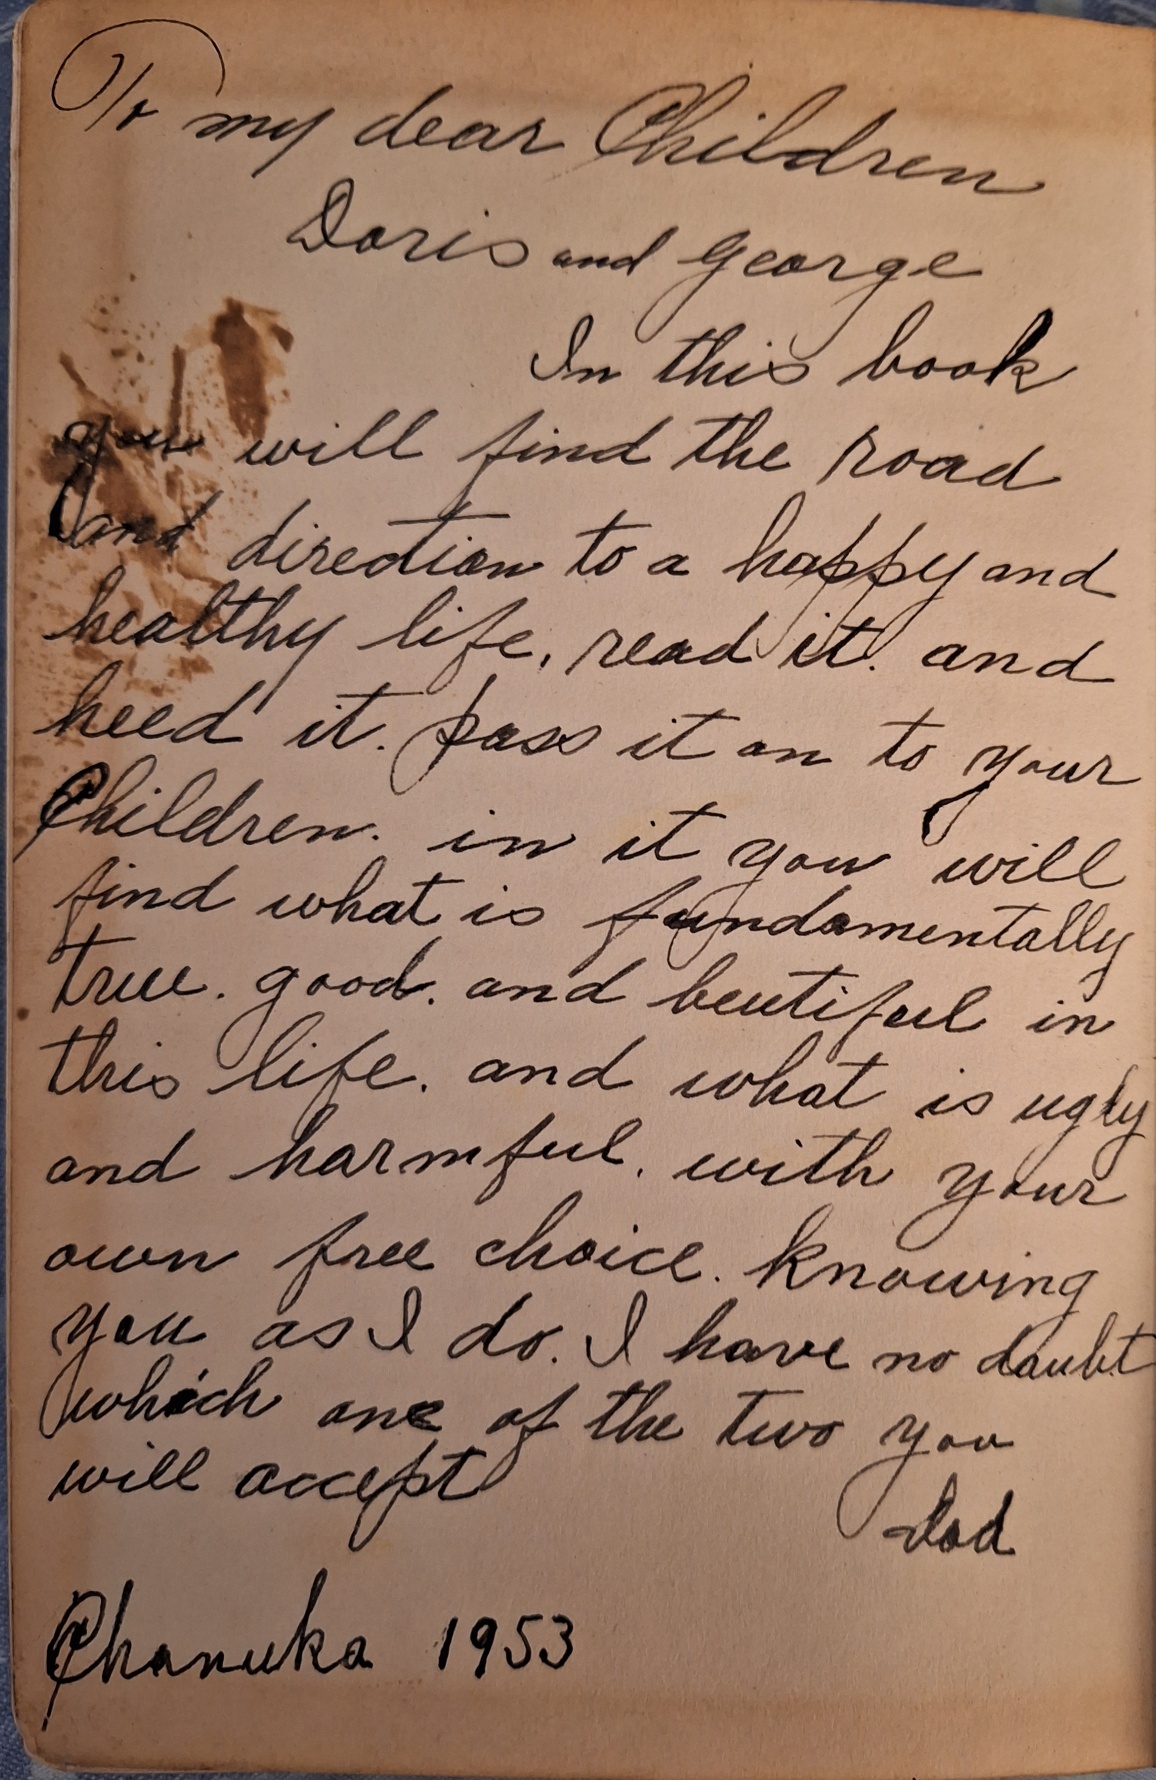 To my dear Children
Doris and George
In this book
you will find the road
and direction to a happy and
healthy life, read it. and
heed it. pass it on to your
Children. in it you will
find what is fundamentally
true. good. and beutiful in
this life. and what is ugly
and harmful. with your
own free choice. knowing
you as I do. I have no doubt
which one of the two you
will accept
Dad
Chanuka 1953